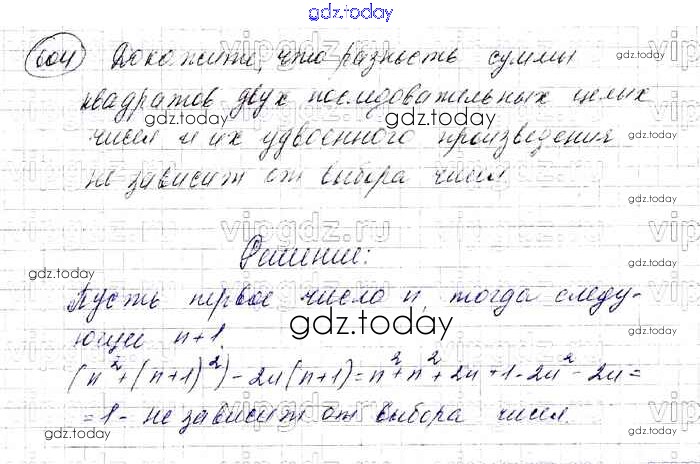 gdz.today
604 Докажите, что разность суммы
квадратов двух последовательных целих
gdz.today gdz.today
чисел и их удвоенного произведения
vipgdz.ru vipgdz.ru
не зависит от выбора чисел
vipgdz.ru vipgdz.ru
Решение:
gdz.today gdz.today
Пусть первое число n, тогда следу-
ющее n+1.
gdz.today
(n²+(n+1)²)-2n(n+1)=n²+n²+2n+1-2n²-2n=
=1- не зависит от выбора чисел.
gdz.today gdz.today